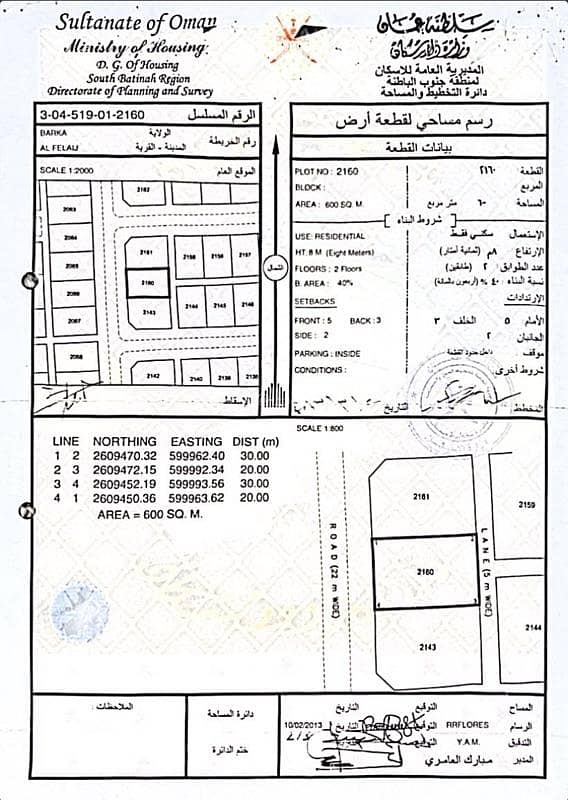 Sultanate of Oman
Ministry of Housing
D. G. Of Housing
South Batinah Region
Directorate of Planning and Survey
سلطنة عمان
وزارة الإسكان
المديرية العامة للاسكان
لمنطقة جنوب الباطنة
دائرة التخطيط والمساحة
3-04-519-01-2160 الرقم المسلسل
BARKA الولاية
AL FELAIJ المدينة - القرية
رقم الخريطة
SCALE 1:2000 الموقع العام
2162
2063
2064
2065
2066
2067
2068
2161
2160
2143
2142
2158 2156 2157
2144 2145 2146
2140 2138
الشمال
الإسقاط
رسم مساحي لقطعة أرض
بيانات القطعة
PLOT NO : 2160 القطعة ٢١٦٠
BLOCK : المربع
AREA : 600 SQ. M. المساحة ٦٠ متر مربع
شروط البناء
USE: RESIDENTIAL الإستعمال سكني فقط
HT: 8 M (Eight Meters) الإرتفاع ٨م (ثمانية أمتار)
FLOORS : 2 Floors عدد الطوابق ٢ (طابقين)
B. AREA : 40% نسبة البناء ٤٠ % (أربعون بالمائة)
SETBACKS الإرتدادات
FRONT : 5 BACK : 3 الأمام ٥ الخلف ٣
SIDE : 2 الجانبان ٢
PARKING : INSIDE موقف داخل حدود القطعة
CONDITIONS : شروط أخرى
المخطط التاريخ
SCALE 1:800
LINE NORTHING EASTING DIST (m)
1 2 2609470.32 599962.40 30.00
2 3 2609472.15 599992.34 20.00
3 4 2609452.19 599993.56 30.00
4 1 2609450.36 599963.62 20.00
AREA = 600 SQ. M.
ROAD (22 m WIDE)
LANE (5 m WIDE)
2161
2160
2143
2159
2144
الملاحظات :
دائرة المساحة
ختم الدائرة
المساح التوقيع التاريخ
الرسام RRFLORES التوقيع التاريخ 10/02/2013
التدقيق Y.A.M. التوقيع التاريخ
المدير مبارك العامري